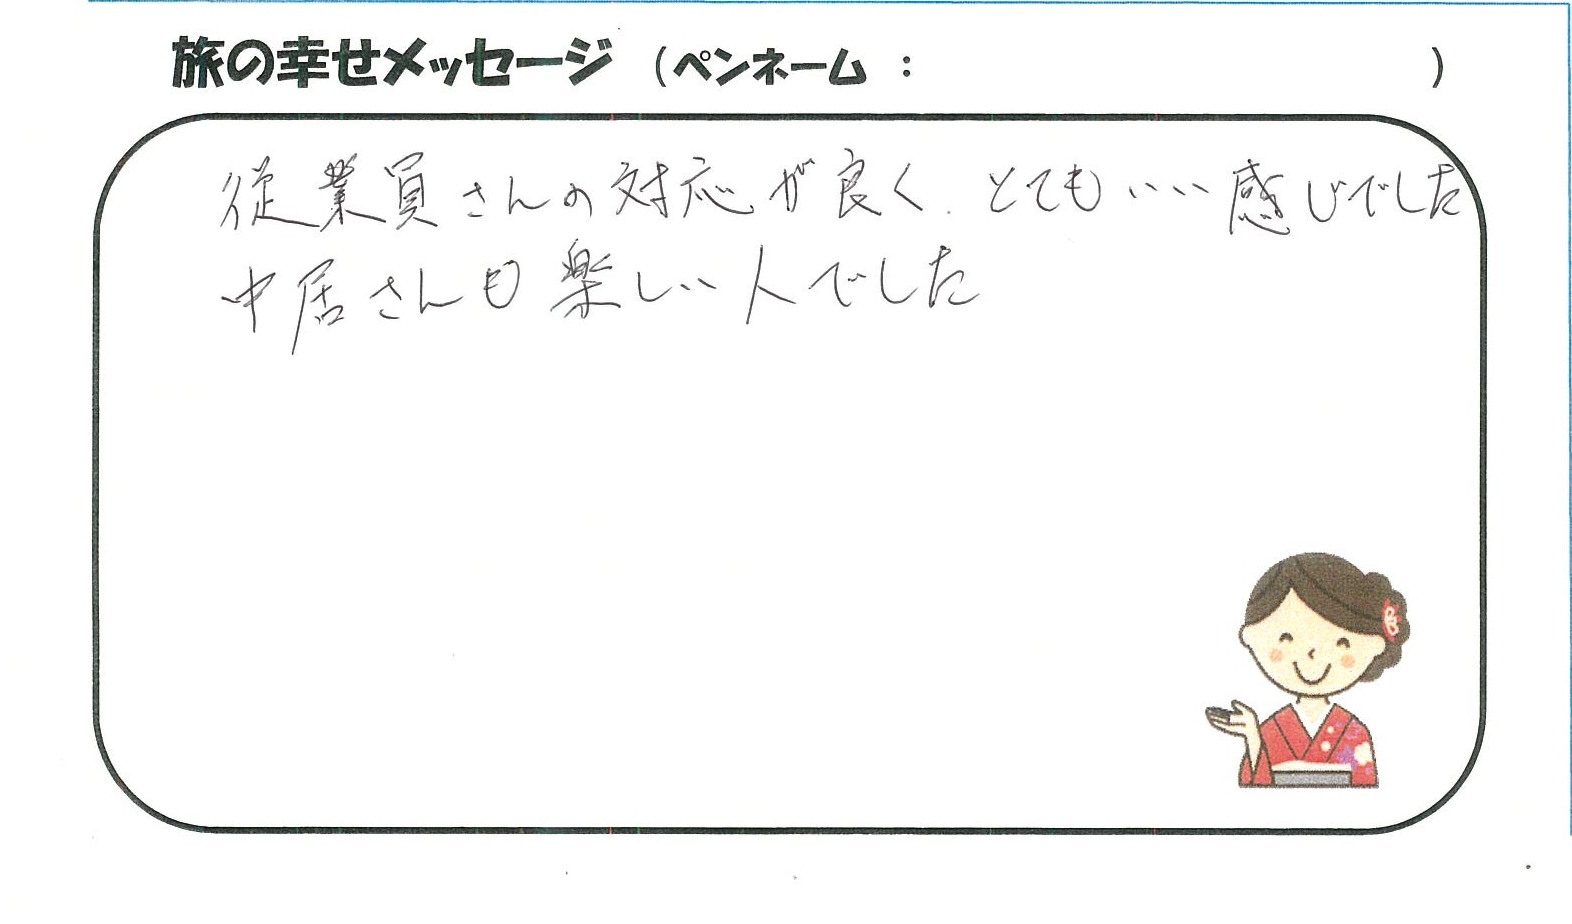 旅の幸せメッセージ (ペンネーム : )
従業員さんの対応が良く、とてもいい感じでした
中居さんも楽しい人でした